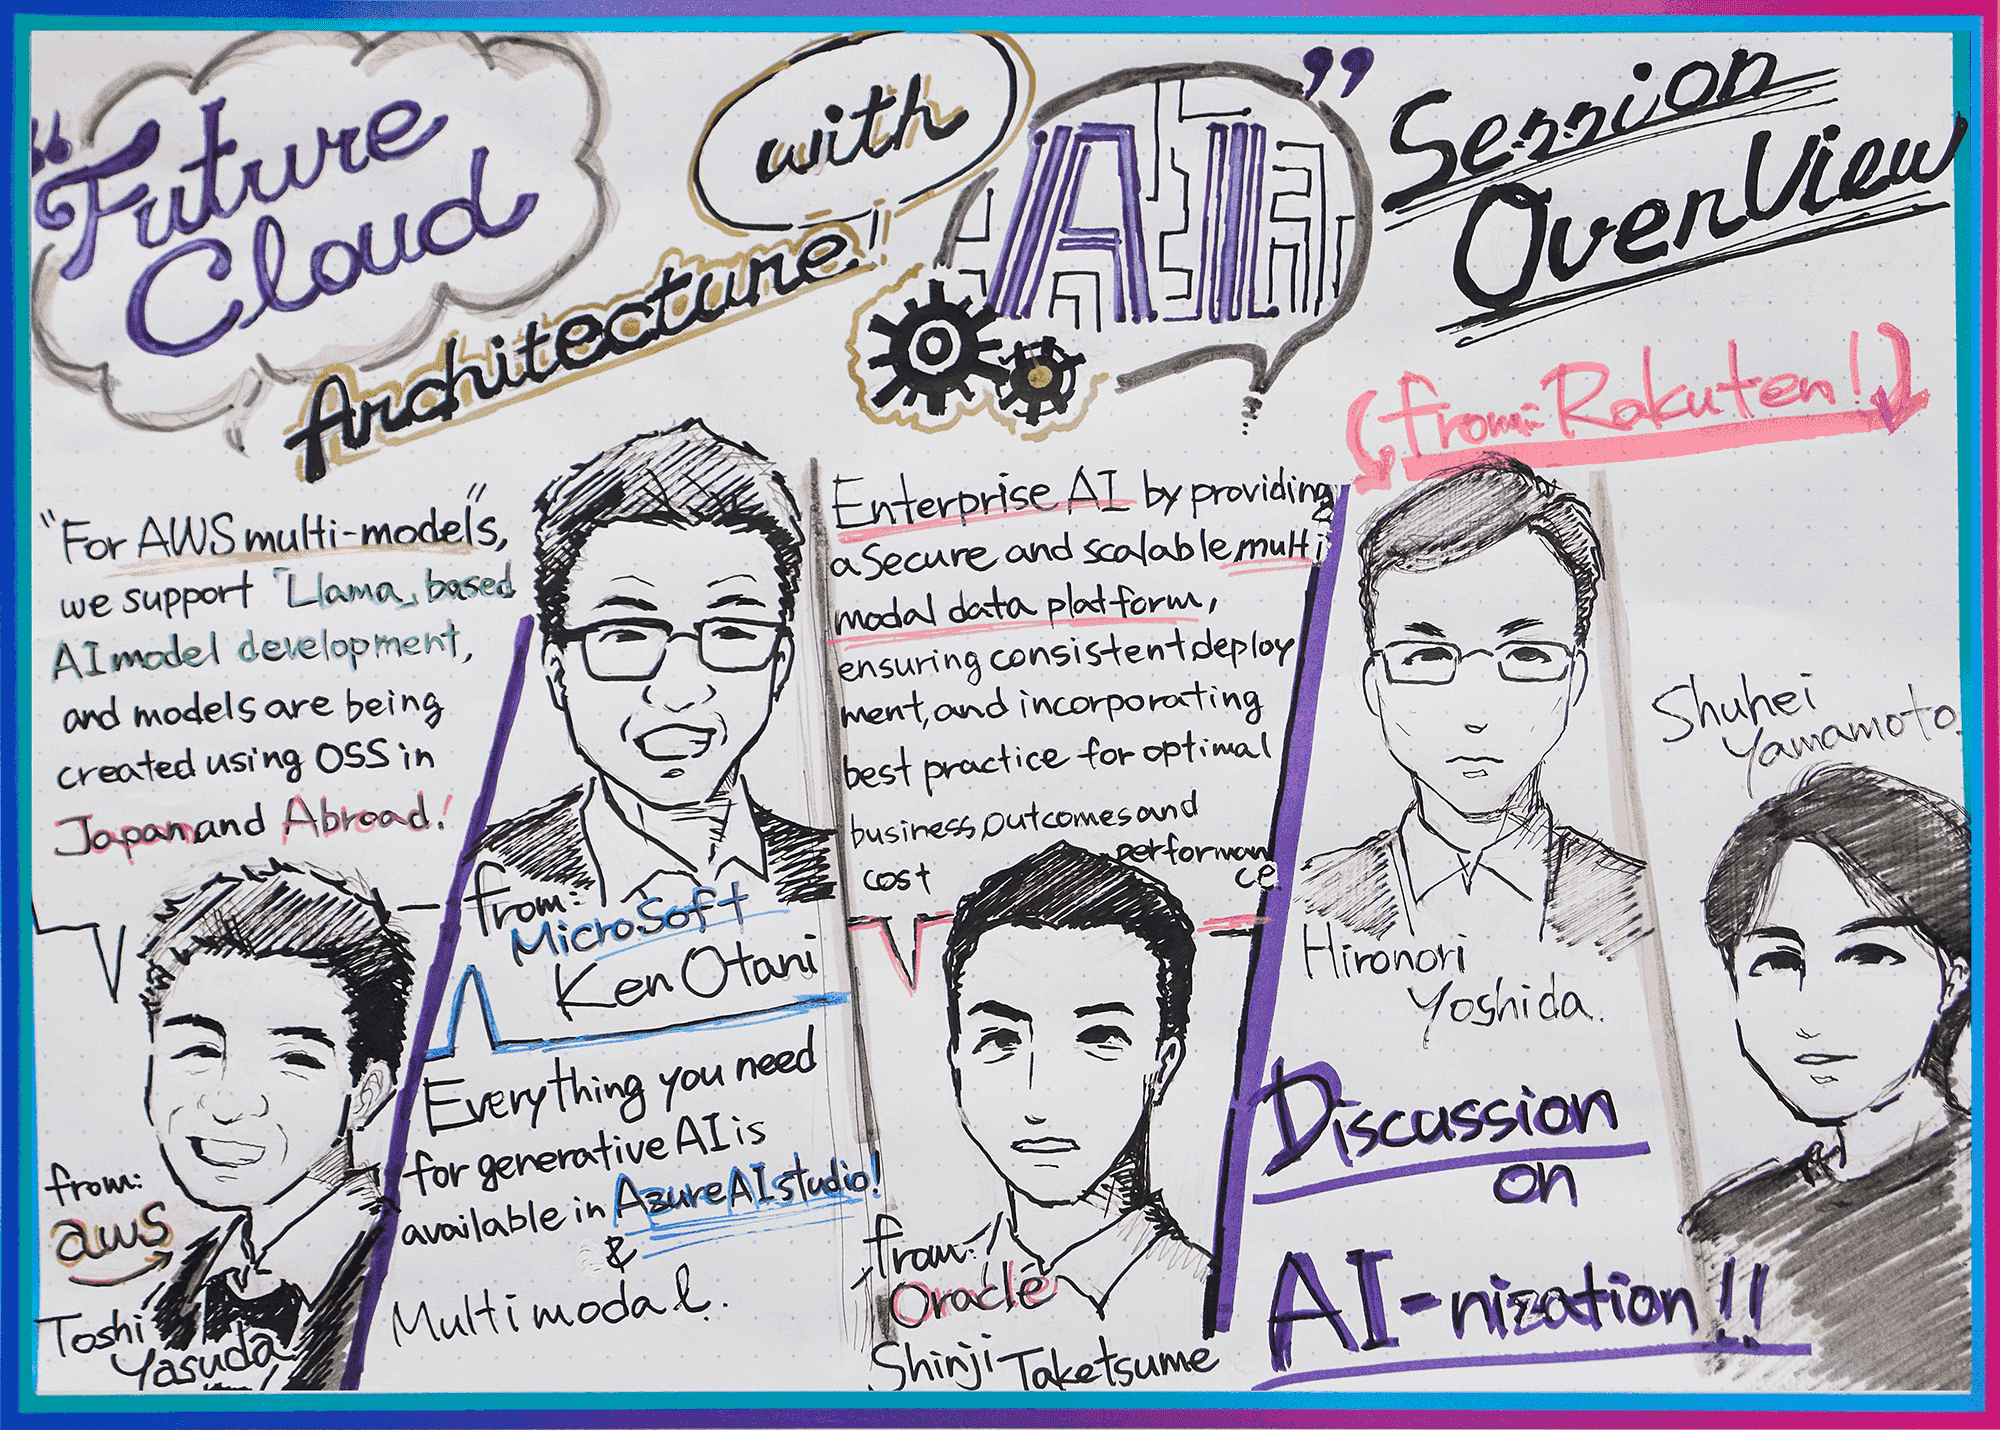 “Future
Cloud
Architecture!!
with
AI”
Session
OverView
from: Rakuten!
“For AWS multi-models”,
we support 「Llama」 based
AI model development,
and models are being
created using OSS in
Japan and Abroad!
from:
aws
Toshi
Yasuda
from:
MicroSoft
Ken Otani
Everything you need
for generative AI is
available in Azure AI studio!
&
Multi modal.
Enterprise AI by providing
a secure and scalable multi
modal data platform,
ensuring consistent deploy
ment, and incorporating
best practice for optimal
business, outcomes and
cost performan
ce.
from:
Oracle
Shinji Taketsume
Hironori
Yoshida.
Shuhei
Yamamoto.
Discussion
on
AI-nization!!